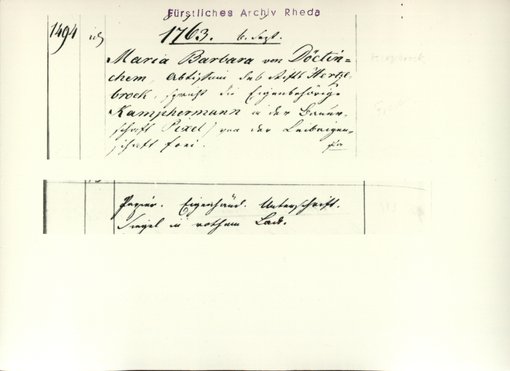 Fürstliches Archiv Rheda
1494
1763. 6. Sept.
Maria Barbara von Döctin-
chem, Abtissin des Stifts Hertze-
brock, spricht die Eigenbehörige
Kamphermann in der Bauer-
schaft Pixel, von der Leibeigen-
schaft frei.
Papier. Eigenhänd. Unterschrift.
Siegel in rothem Lack.